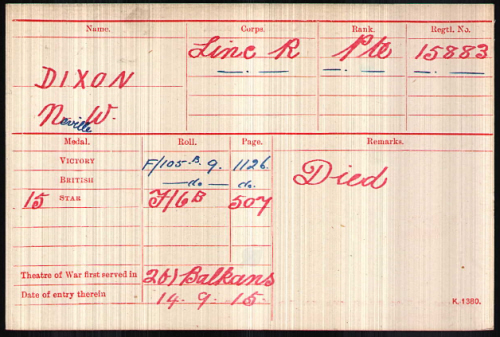 Name. Corps. Rank. Regtl. No.
Linc R Pte 15883
DIXON
Neville W.
Medal. Roll. Page. Remarks.
VICTORY F/105.B.9. 1126.
BRITISH —do— do.
15 STAR F/6B 507
Died
Theatre of War first served in 2(b) Balkans
Date of entry therein 14. 9. 15.
K. 1380.